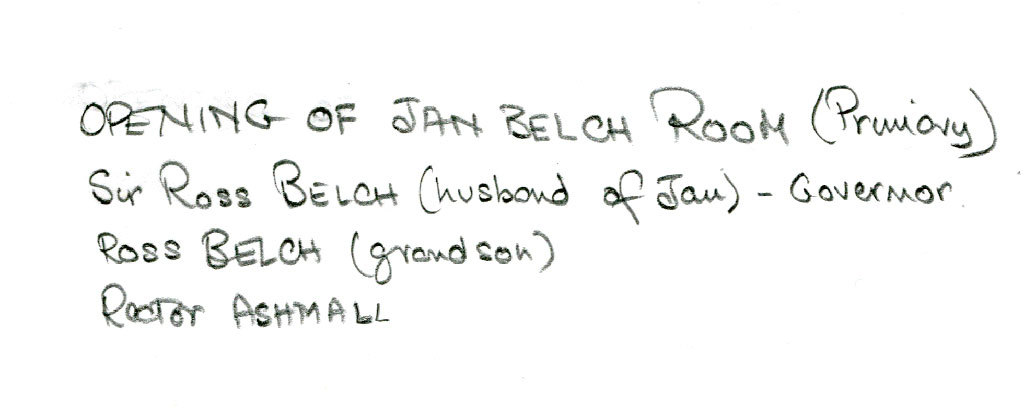 OPENING OF JAN BELCH ROOM (Primary)
Sir Ross BELCH (husband of Jan) - Governor.
Ross BELCH (grandson)
Rector ASHMALL